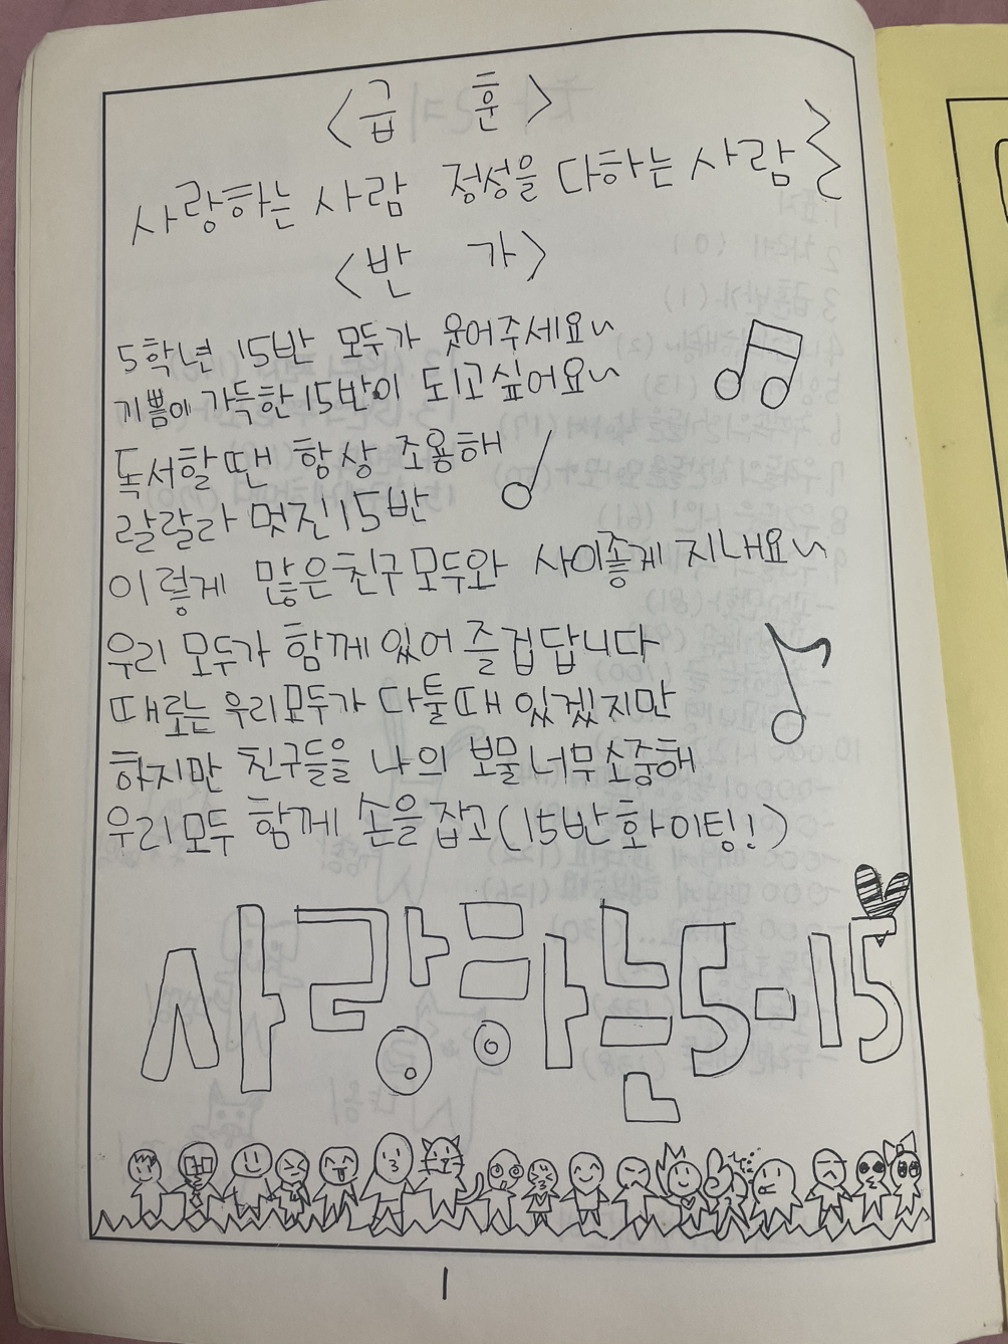 <급 훈>
사랑하는 사람 정성을 다하는 사람
<반 가>
5학년 15반 모두가 웃어주세요~
기쁨이 가득한 15반이 되고싶어요~
독서할 땐 항상 조용해
랄랄라 멋진 15반
이렇게 많은 친구 모두와 사이좋게 지내요~
우리 모두가 함께 있어 즐겁답니다
때로는 우리모두가 다툴때 있겠지만
하지만 친구들을 나의 보물 너무 소중해
우리 모두 함께 손을 잡고(15반 화이팅!)
사랑하는 5-15
1